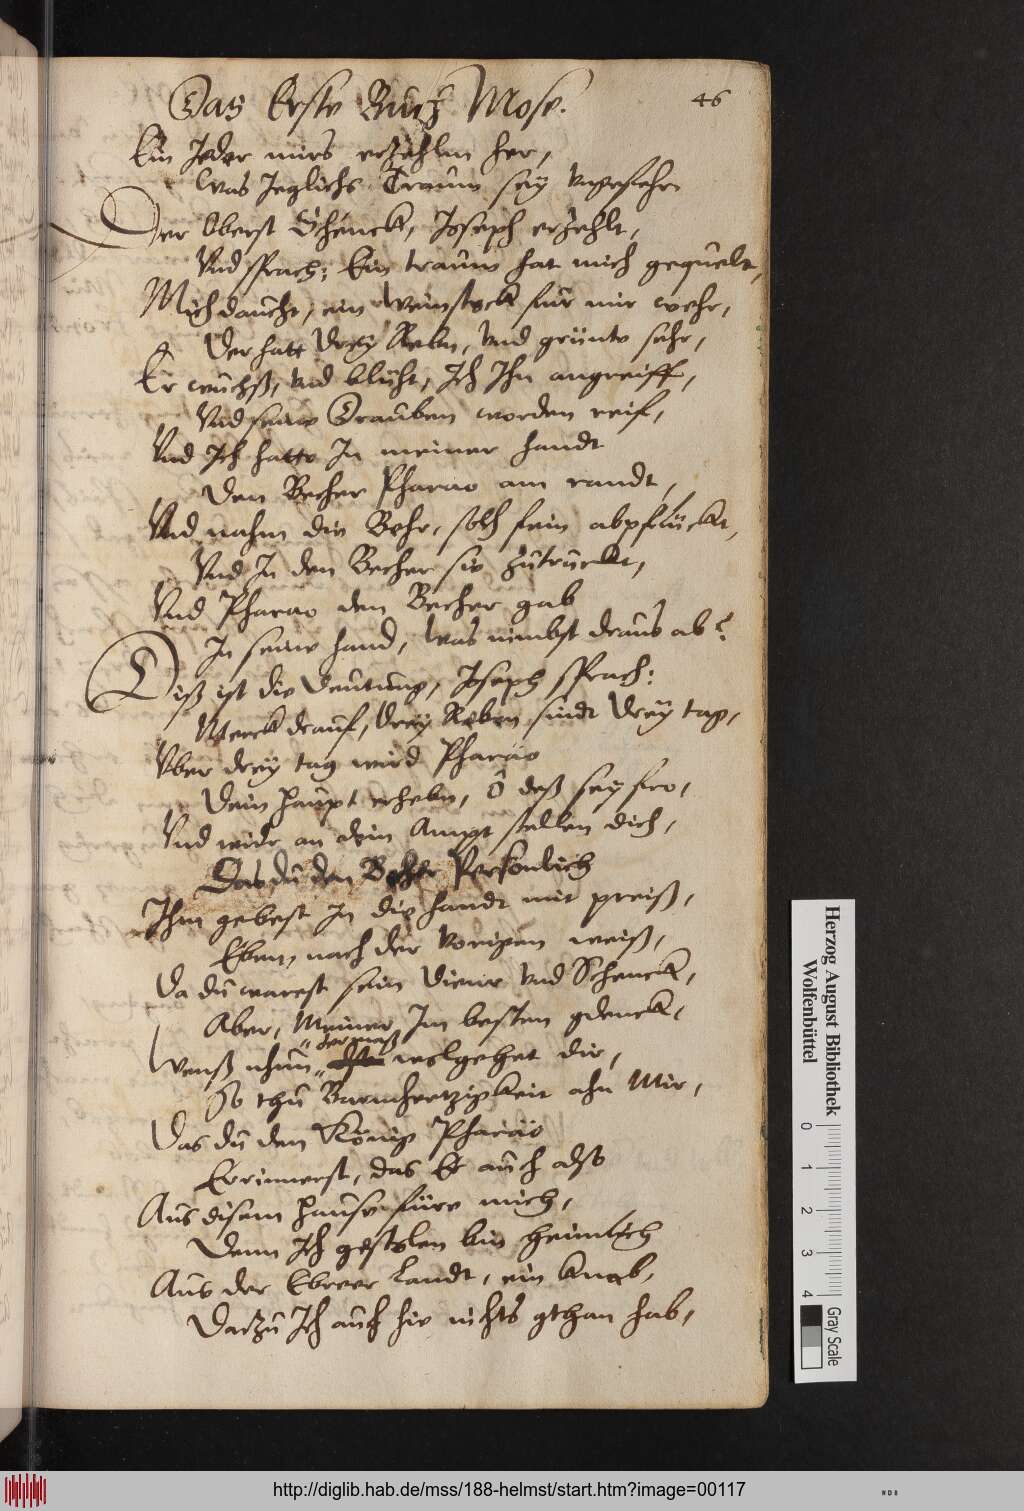 Das Erste Buch Mose.
46
Ein Jeder mirs erzehlen her,
Was Jeglichs Traum sey vngefehr.
Der Oberst Schenck, Joseph erzehlt,
Vnd sprach: Ein traum hat mich gequelt,
Mich daucht, ein Weinstock für mir wehr,
Der hatt Drey Rebn, vnd grünte sehr,
Er wuchß, vnd blüht, Ich Ihn angreiff,
Vnd seine Drauben worden reif,
Vnd Ich hatte In meiner handt
Den Becher Pharao am randt,
Vnd nahm die Behr, solch fein abpflückt,
Vnd In den Becher sie zutruckt,
Vnd Pharao den Becher gab
In seine hand, was nimbst draus ab?
Diß ist die Deutung, Joseph sprach:
Merck drauf, Drey Reben sindt Drey tag,
Vber drey tag wird Pharao
Dein Haupt erhebn, ô deß sey fro,
Vnd wider an dein Ampt stellen dich,
Das du den Becher Persönlich
Ihm gebest In die handt mit preiß,
Eben, nach der vorigen weiß,
Da du warest sein Diener vnd Schenck,
Aber, Meiner Im besten gdenck,
dermaß
Wenß nhun wolgehet dir,
So thu Barmhertzigkeit ahn Mir,
Das du den König Pharao
Errinnerst, das Er auch also
Aus disem Hause füre mich,
Denn Ich gestolen bin heimlich
Aus der Ebreer Landt, ein knab,
Darzu Ich auch hie nichts gthan hab,
Herzog August Bibliothek
Wolfenbüttel
0 1 2 3 4
Gray Scale
http://diglib.hab.de/mss/188-helmst/start.htm?image=00117